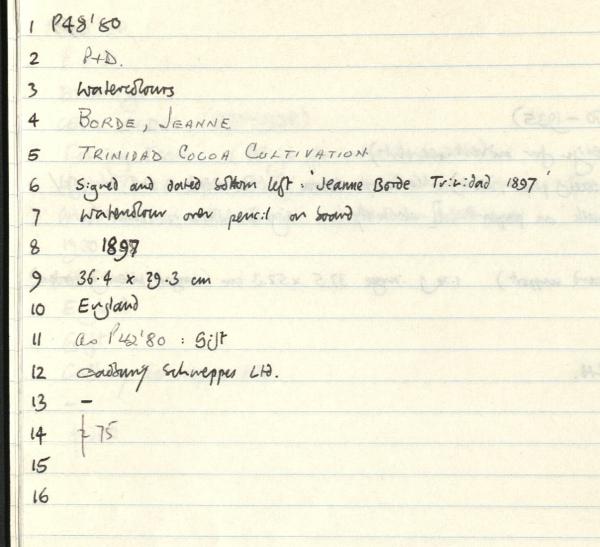 1 P48'80
2 P+D.
3 Watercolours
4 BORDE, JEANNE
5 TRINIDAD COCOA CULTIVATION
6 Signed and dated bottom left: 'Jeanne Borde Trinidad 1897'
7 Watercolour over pencil on board
8 1897
9 36.4 x 29.3 cm
10 England
11 as P42'80 : Gift
12 Cadbury Schweppes Ltd.
13 –
14 75
15
16